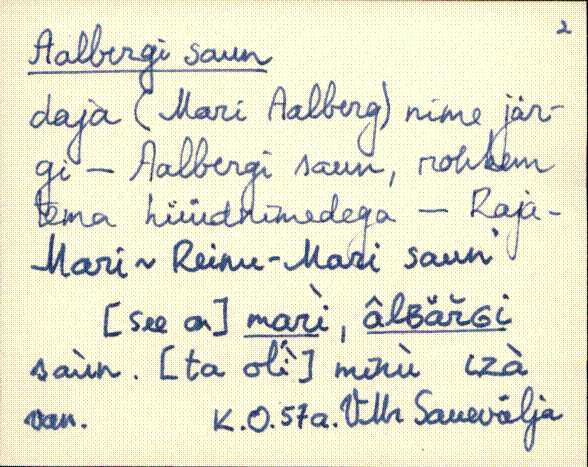 2
Aalbergi saun
daja (Mari Aalberg) nime jär-
gi – Aalbergi saun, rohkem
tema hüüdnimedega – Raja-
Mari ~ Reinu-Mari saun
[see on] mari̇̀, âlʙäřɢi
saùn. [ta oli̇̀] minù izà
van. K.O. 57a. Villr Sauevälja